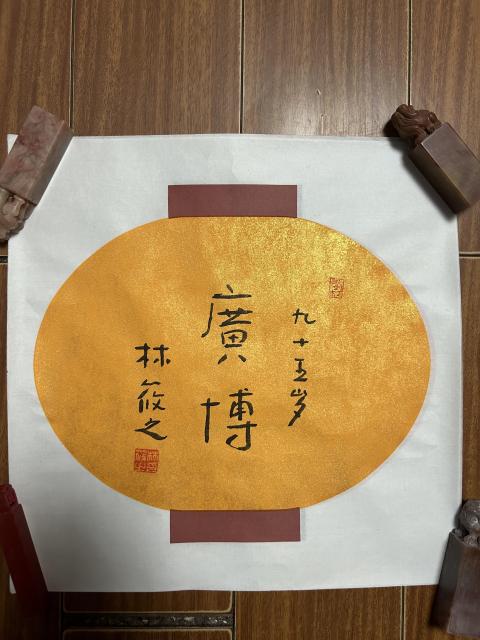 九十五岁
廣博
林筱之